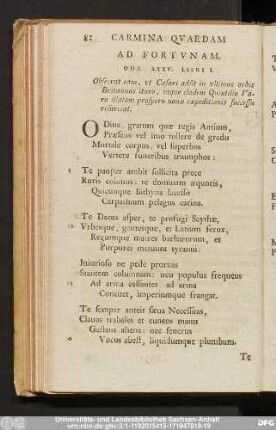 82 CARMINA QVAEDAM
AD FORTVNAM.
ODE XXXV. LIBRI I.
Obsecrat eam, ut Cæsari adsit in ultimos orbis
Britannos ituro, utque cladem Quintilio Va-
ro illatam prospero novæ expeditionis successu
resarciat.
O Diva, gratum quæ regis Antium,
Præsens vel imo tollere de gradu
Mortale corpus, vel superbos
Vertere funeribus triumphos:
5 Te pauper ambit sollicita prece
Ruris colonus: te dominam æquoris,
Quicunque Bithyna lacessit
Carpathium pelagus carina.
Te Dacus asper, te profugi Scythæ,
10 Vrbesque, gentesque, et Latium ferox,
Regumque matres barbarorum, et
Purpurei metuunt tyranni:
Iniurioso ne pede proruas
Stantem columnam: neu populus frequens
15 Ad arma cessantes ad arma
Concitet, imperiumque frangat.
Te semper anteit sæva Necessitas,
Clavos trabales et cuneos manu
Gestans ahena: nec severus
20 Vncus abest, liquidumque plumbum.
Te
Universitäts- und Landesbibliothek Sachsen-Anhalt
urn:nbn:de:gbv:3:1-1192015415-171947819-19